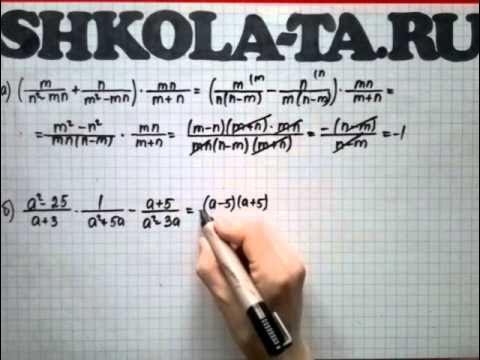 SHKOLA-TA.RU
а) (m/(n²-mn) + n/(m²-mn)) · mn/(m+n) = (m/(n(n-m)) (m - n/(m(n-m)) (n) · mn/(m+n) =
= (m²-n²)/(mn(n-m)) · mn/(m+n) = ((m-n)(m+n) · mn)/(mn(n-m)(m+n)) = -(n-m)/(n-m) = -1
б) (a²-25)/(a+3) · 1/(a²+5a) - (a+5)/(a²-3a) = (a-5)(a+5)